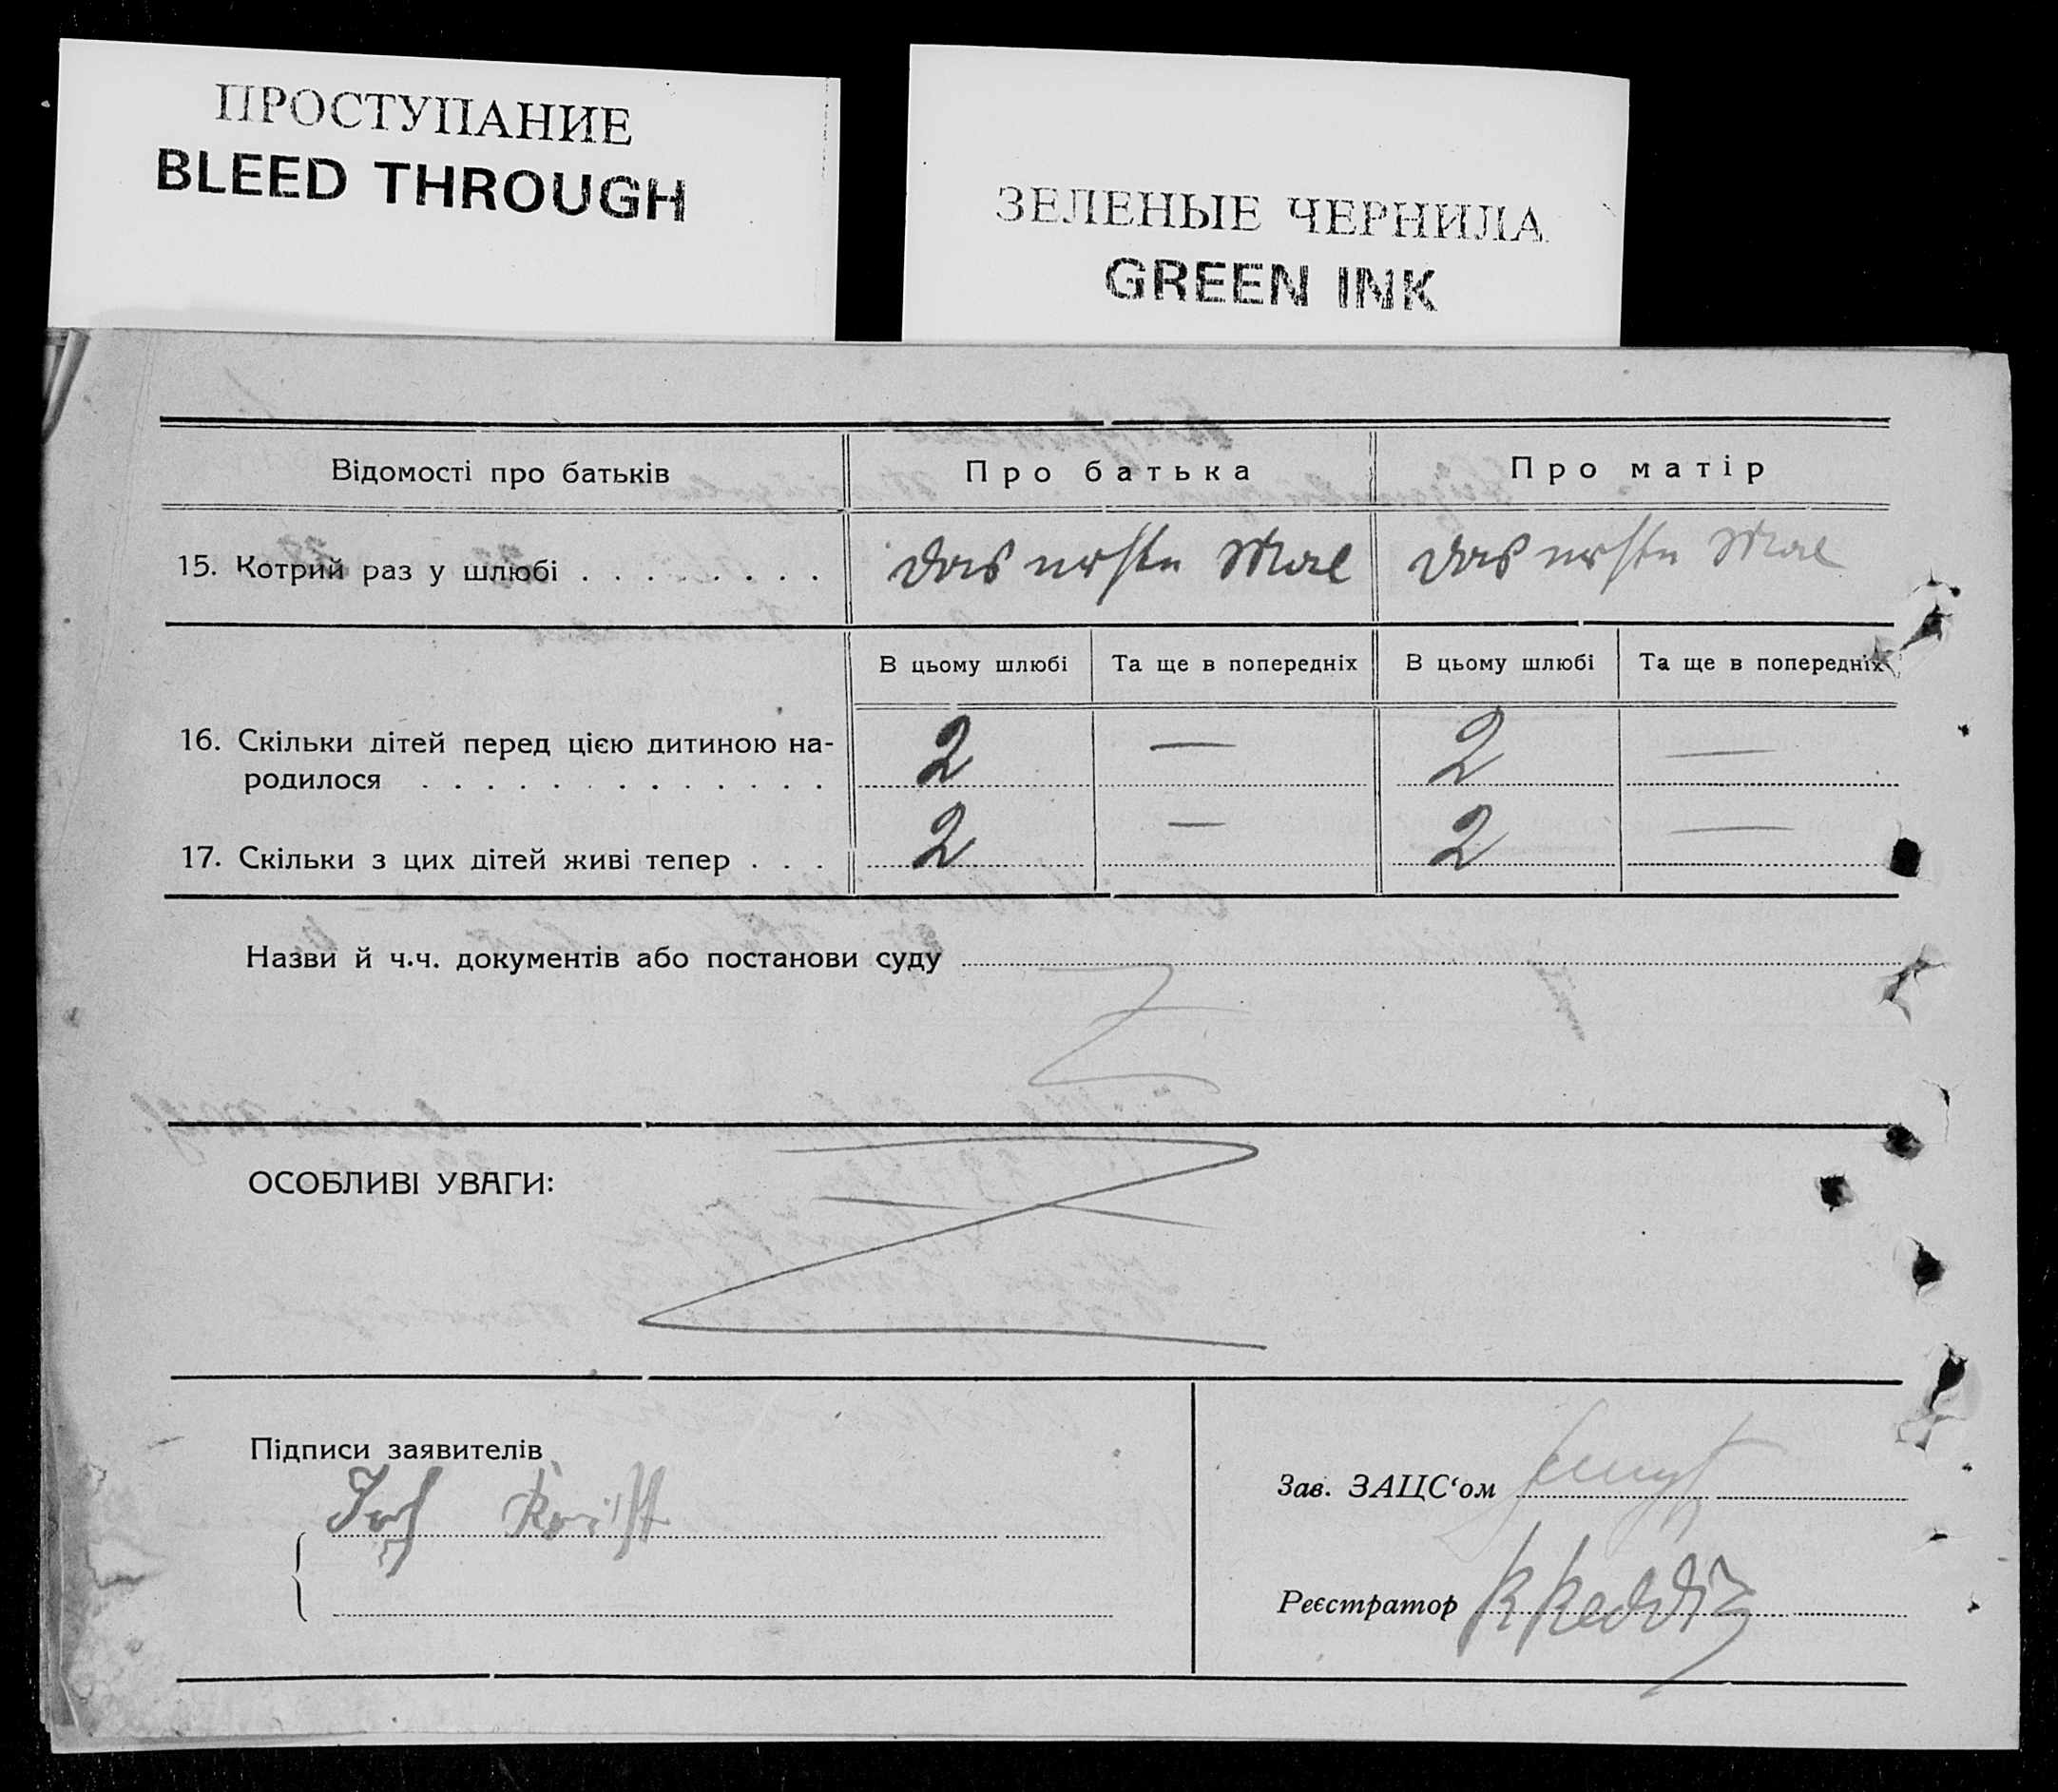 ПРОСТУПАНИЕ
BLEED THROUGH
ЗЕЛЕНЫЕ ЧЕРНИЛА
GREEN INK
Відомості про батьків Про батька Про матір
15. Котрий раз у шлюбі . . . . . . . . das erste Mal das erste Mal
В цьому шлюбі Та ще в попередніх В цьому шлюбі Та ще в попередніх
16. Скільки дітей перед цією дитиною на-
родилося . . . . . . . . . . . . . 2 — 2 —
17. Скільки з цих дітей живі тепер . . . 2 — 2 —
Назви й ч.ч. документів або постанови суду
ОСОБЛИВІ УВАГИ:
Підписи заявителів
Зав. ЗАЦС‘ом
Реєстратор